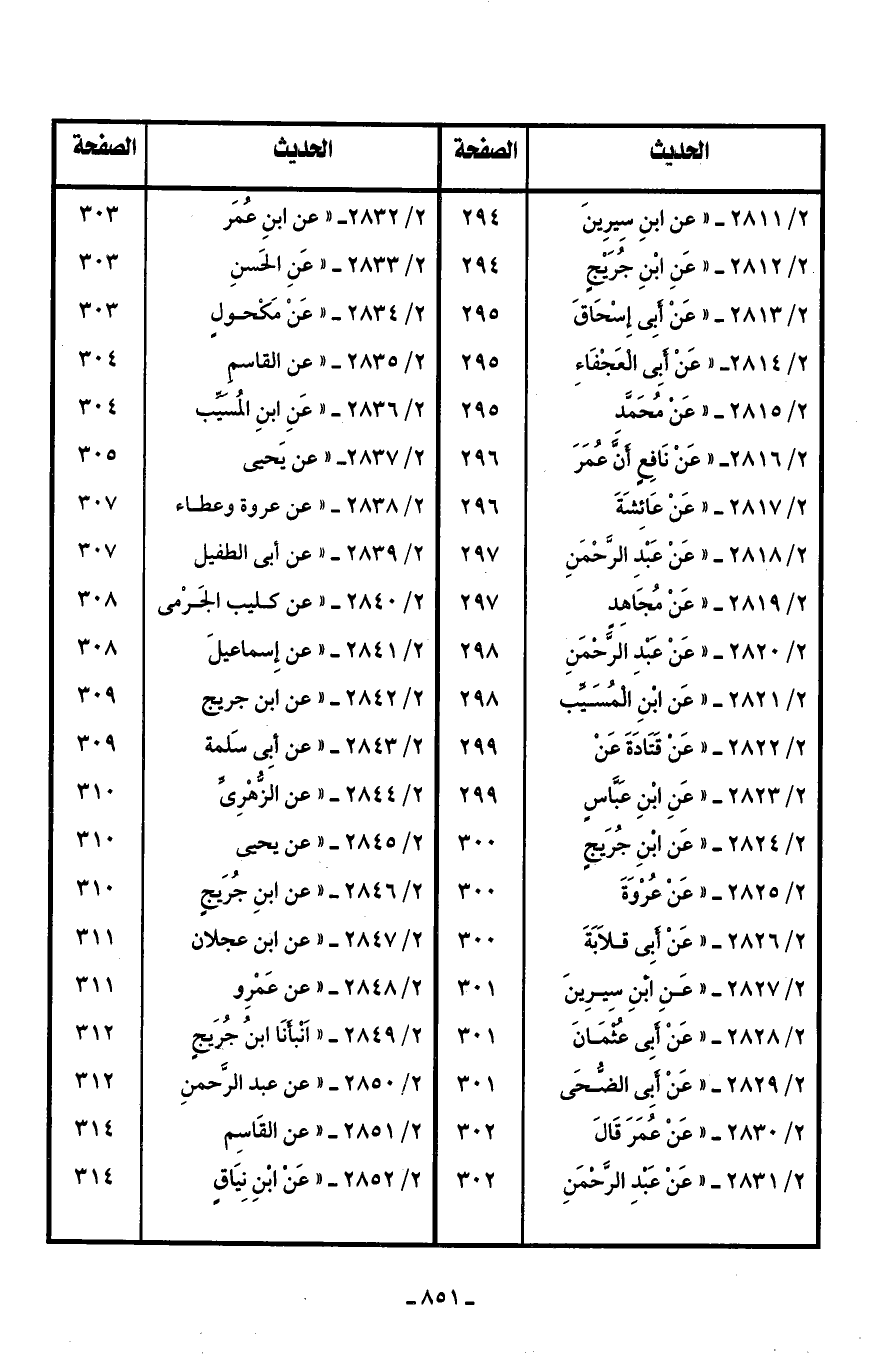 الحديث الصفحة الحديث الصفحة
٢/ ٢٨١١ ـ « عن ابنِ سِيرِينَ ٢٩٤ ٢/ ٢٨٣٢ـ « عن ابنِ عُمَرَ ٣٠٣
٢/ ٢٨١٢ ـ « عَنِ ابْنِ جُرَيْجٍ ٢٩٤ ٢/ ٢٨٣٣ ـ « عَنِ الحَسنِ ٣٠٣
٢/ ٢٨١٣ ـ « عَنْ أَبِى إِسْحَاقَ ٢٩٥ ٢/ ٢٨٣٤ ـ « عَنْ مَكْحـولٍ ٣٠٣
٢/ ٢٨١٤ـ « عَنْ أَبِى الْعَجْفَاءِ ٢٩٥ ٢/ ٢٨٣٥ ـ « عن القاسمِ ٣٠٤
٢/ ٢٨١٥ ـ « عَنْ مُحَمَّدٍ ٢٩٥ ٢/ ٢٨٣٦ ـ « عَنِ ابنِ المُسَيِّب ٣٠٤
٢/ ٢٨١٦ـ « عَنْ نَافِعٍ أَنَّ عُمَرَ ٢٩٦ ٢/ ٢٨٣٧ـ « عن يَحيى ٣٠٥
٢/ ٢٨١٧ ـ « عَنْ عَائِشَةَ ٢٩٦ ٢/ ٢٨٣٨ ـ « عن عروة وعطـاء ٣٠٧
٢/ ٢٨١٨ ـ « عَنْ عَبْدِ الرَّحْمَنِ ٢٩٧ ٢/ ٢٨٣٩ ـ « عن أبى الطفيل ٣٠٧
٢/ ٢٨١٩ ـ « عَنْ مُجَاهِدٍ ٢٩٧ ٢/ ٢٨٤٠ ـ « عن كـليب الجَـرْمى ٣٠٨
٢/ ٢٨٢٠ ـ « عَنْ عَبْدِ الرَّحْمَنِ ٢٩٨ ٢/ ٢٨٤١ ـ « عن إِسماعيلَ ٣٠٨
٢/ ٢٨٢١ ـ « عَن ابْنِ الْمُسَـيِّب ٢٩٨ ٢/ ٢٨٤٢ ـ « عن ابن جريج ٣٠٩
٢/ ٢٨٢٢ ـ « عَنْ قَتَادَةَ عَنْ ٢٩٩ ٢/ ٢٨٤٣ ـ « عن أبِى سَلَمة ٣٠٩
٢/ ٢٨٢٣ ـ « عَنِ ابْنِ عَبَّاسٍ ٢٩٩ ٢/ ٢٨٤٤ ـ « عن الزُّهْرِىِّ ٣١٠
٢/ ٢٨٢٤ ـ « عَن ابْنِ جُرَيجٍ ٣٠٠ ٢/ ٢٨٤٥ ـ « عن يحيى ٣١٠
٢/ ٢٨٢٥ ـ « عَنْ عُرْوَةَ ٣٠٠ ٢/ ٢٨٤٦ ـ « عن ابنِ جُرَيجٍ ٣١٠
٢/ ٢٨٢٦ ـ « عَنْ أَبِى قـلاَبَةَ ٣٠٠ ٢/ ٢٨٤٧ ـ « عن ابن عجلان ٣١١
٢/ ٢٨٢٧ ـ « عَـنِ ابْنِ سِيـرِينَ ٣٠١ ٢/ ٢٨٤٨ ـ « عن عَمْرٍو ٣١١
٢/ ٢٨٢٨ ـ « عَنْ أَبِى عُثْمَـانَ ٣٠١ ٢/ ٢٨٤٩ ـ « اَنْبأَنَا ابنُ جُرَيجٍ ٣١٢
٢/ ٢٨٢٩ ـ « عَنْ أَبِى الضُّـحَى ٣٠١ ٢/ ٢٨٥٠ ـ « عن عبد الرَّحمنِ ٣١٢
٢/ ٢٨٣٠ ـ « عَنْ عُمَرَ قَالَ ٣٠٢ ٢/ ٢٨٥١ ـ « عن القَاسِم ٣١٤
٢/ ٢٨٣١ ـ « عَنْ عَبْدِ الرَّحْمَنِ ٣٠٢ ٢/ ٢٨٥٢ ـ « عَنْ ابْنِ نِيَاقٍ ٣١٤
ـ ٨٥١ ـ